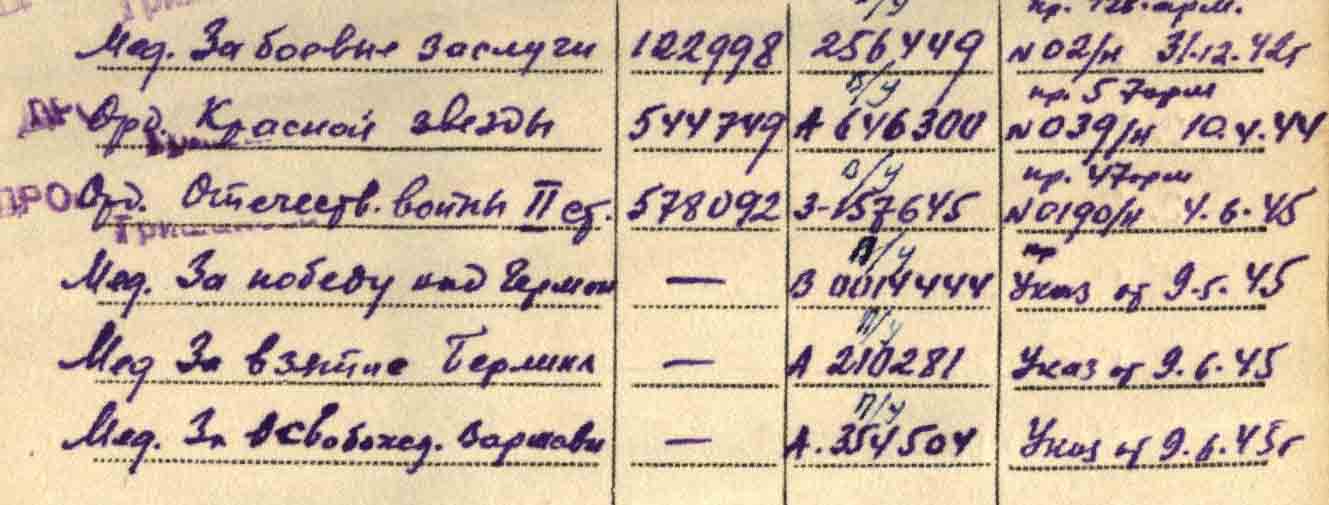 В/У пр. 126.арм.
Мед. За боевые заслуги 122998 256449 N 02/н 31.12.42г
В/У пр. 57арм
Орд. Красной звезды 544749 А 646300 N 039/н 10.4.44
В/У пр. 47арм
Орд. Отечеств. войны II ст. 578092 З-157645 N 0190/н 4.6.45
П/У пр
Мед. За победу над Герман — В 0014444 Указ от 9.5.45
П/У
Мед За взятие Берлина — А 210281 Указ от 9.6.45
П/У
Мед. За освобожд. Варшавы — А.354504 Указ от 9.6.45г